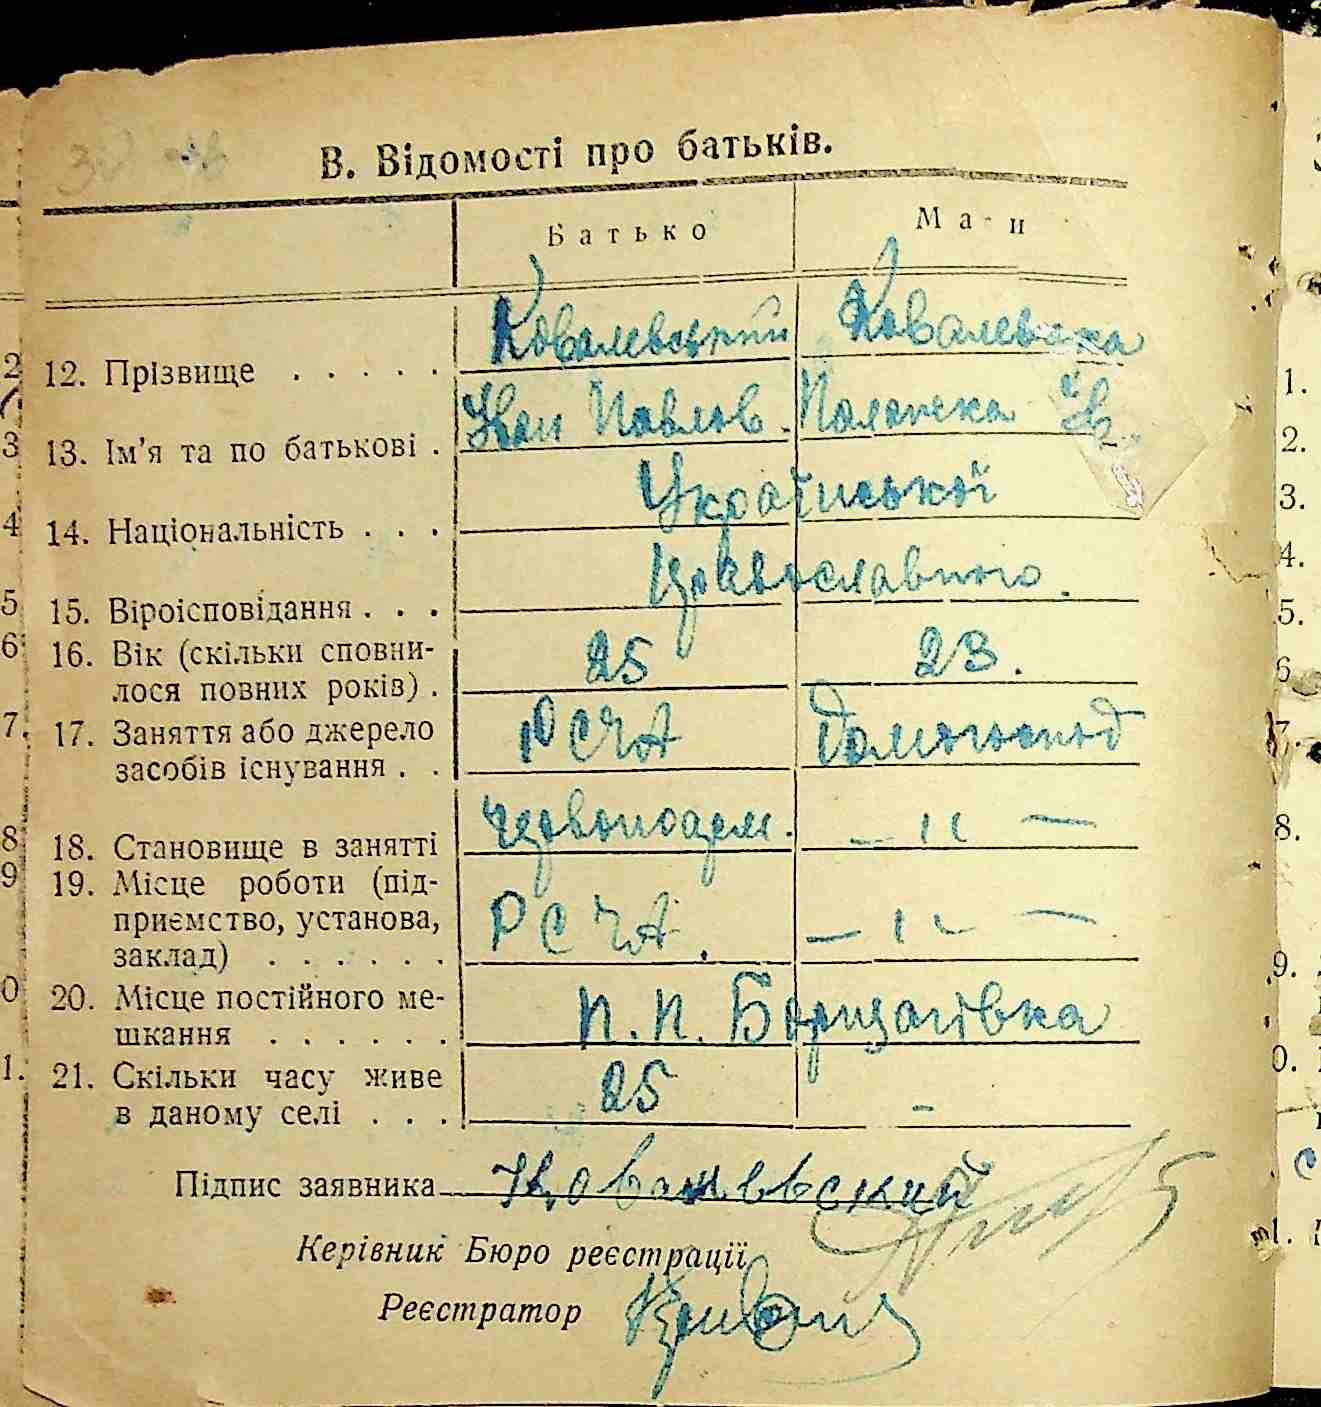 В. Відомості про батьків.
Батько Мати
12. Прізвище . . . . . Ковалевський Ковалевська
13. Ім'я та по батькові . Павлов.
14. Національність . . . Української
15. Віроісповідання . . . Православного.
16. Вік (скільки сповни-
лося повних років) . 25 23.
17. Заняття або джерело
засобів існування . . РСЧА Домогоспод
18. Становище в занятті Червоноарм. — ıı —
19. Місце роботи (під-
приємство, установа,
заклад) . . . . . . РСЧА. — ıı —
20. Місце постійного ме-
шкання . . . . . . П. П. Борщагівка
21. Скільки часу живе
в даному селі . . . 25 -
Підпис заявника Ковалевский
Керівник Бюро реєстрації
Реєстратор